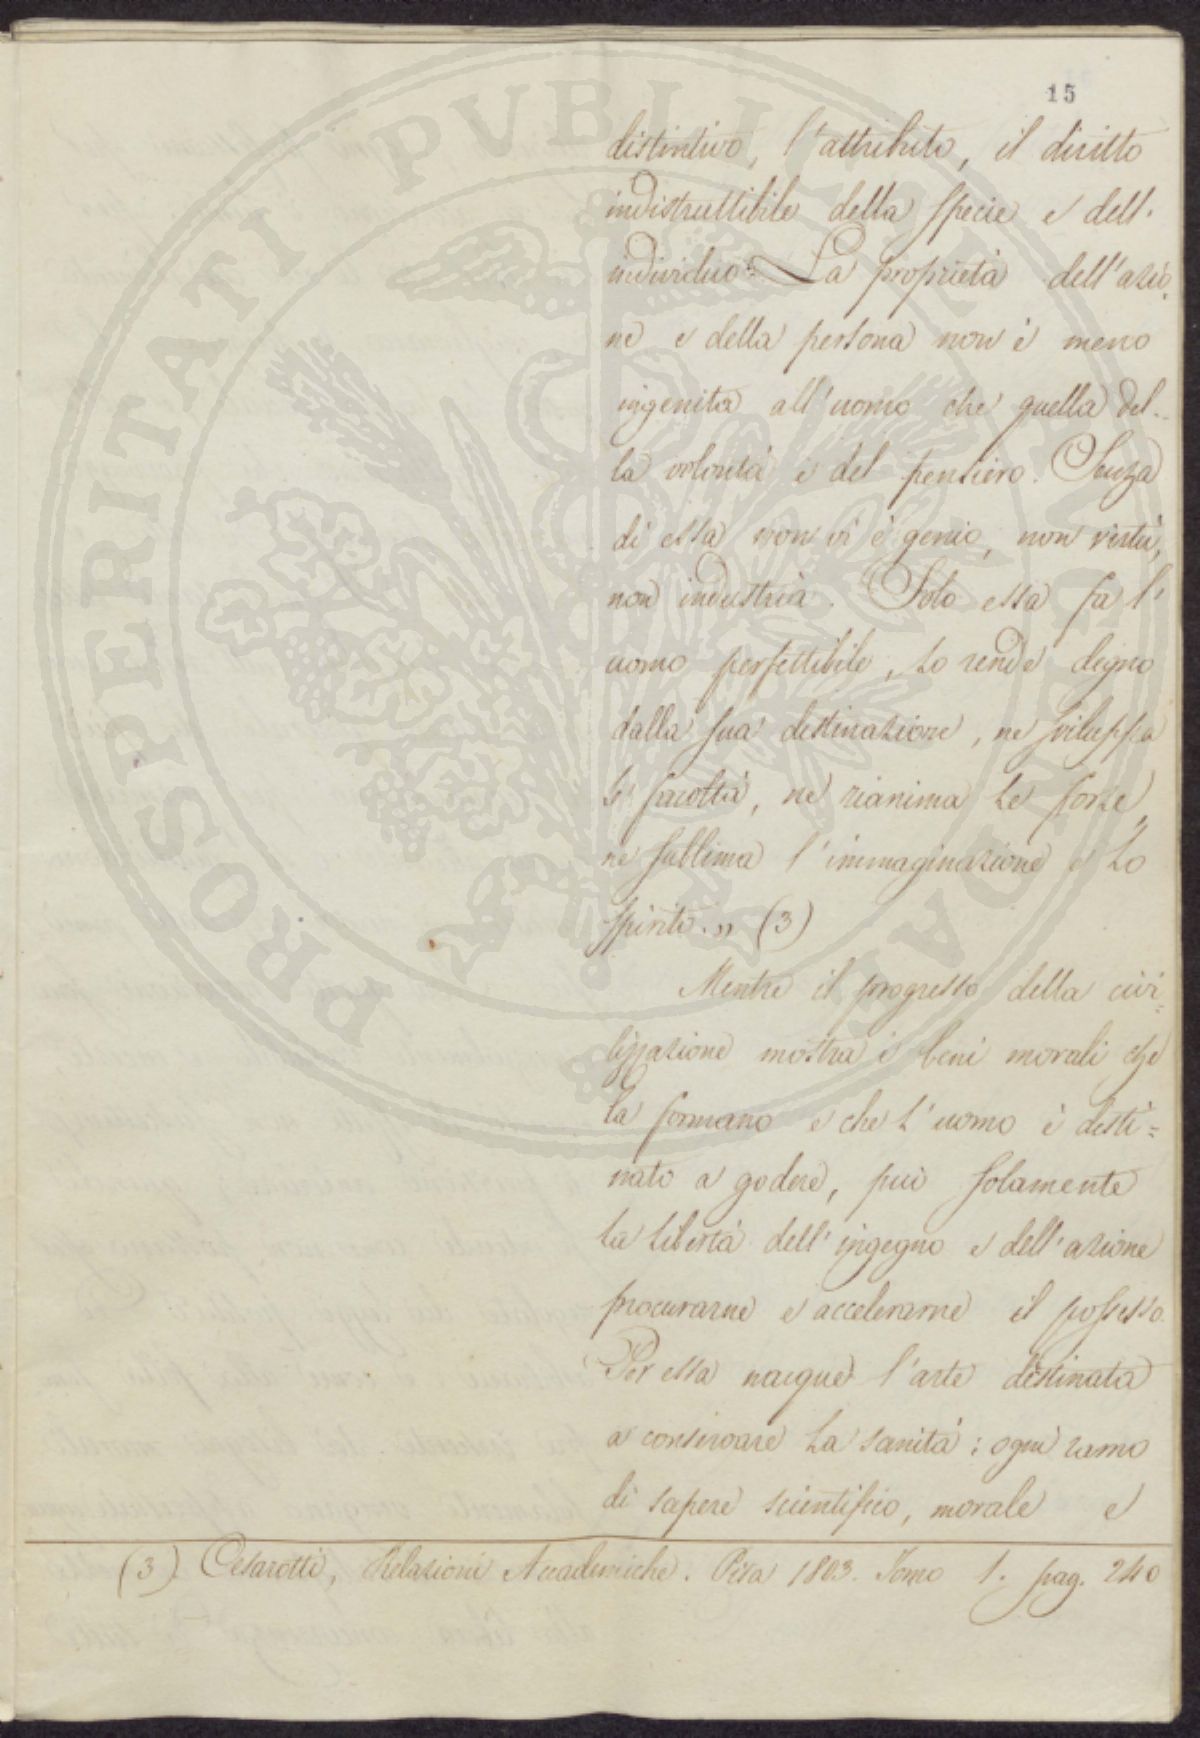 15
distintivo, l'attributo, il diritto
indistruttibile della specie e dell'
individuo. La proprietà dell'azio
ne e della persona non è meno
ingenita all'uomo che quella del-
la volontà e del pensiero. Senza
di essa non vi è genio, non virtù,
non industria. Solo essa fa l'
uomo perfettibile, lo rende degno
dalla sua destinazione, ne sviluppa
le facoltà, ne rianima le forze,
ne sublima l'immaginazione e lo
spirito. „ (3)
Mentre il progresso della civi=
lizzazione mostra i beni morali che
la formano e che l'uomo è desti=
nato a godere, può solamente
la libertà dell'ingegno e dell'azione
procurarne e accelerarne il possesso.
Per essa nacque l'arte destinata
a conservare la sanità: ogni ramo
di sapere scientifico, morale e
(3) Cesarotti, Relazioni Accademiche. Pisa 1803. Tomo 1. pag. 240
PROSPERITATI PVBLICAE AVGENDAE